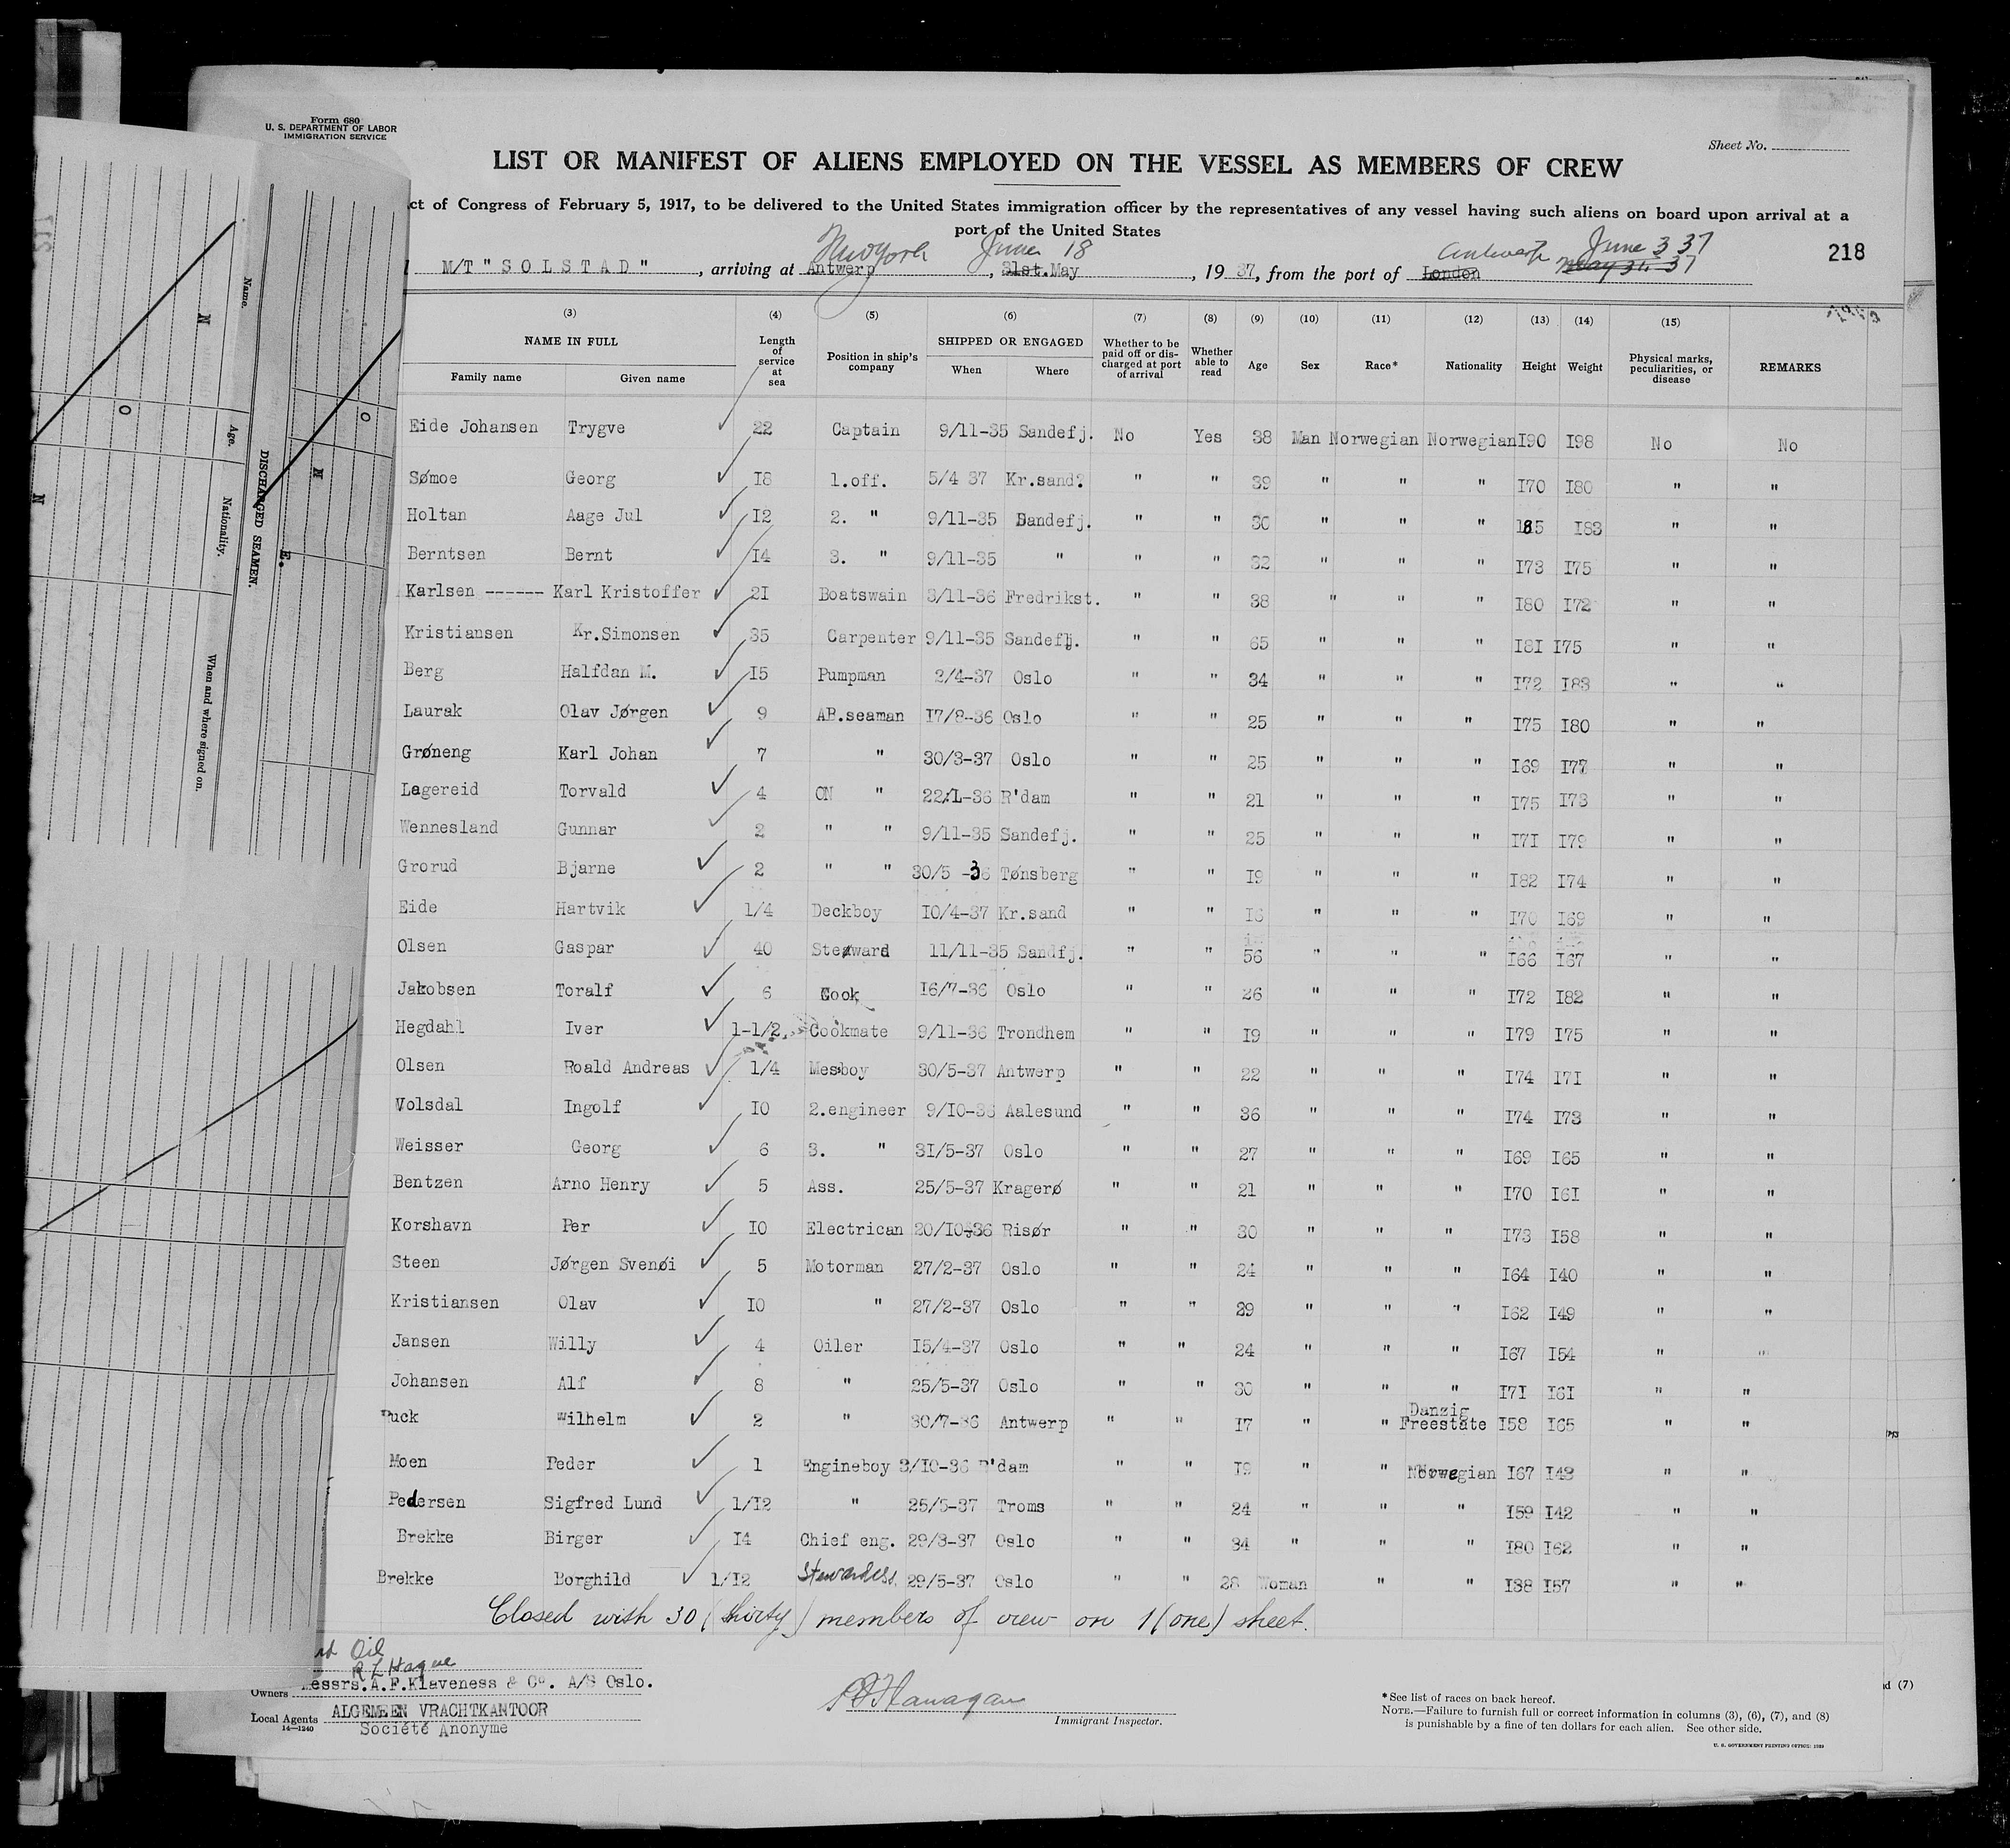 Form 680
U. S. DEPARTMENT OF LABOR
IMMIGRATION SERVICE
Sheet No.
LIST OR MANIFEST OF ALIENS EMPLOYED ON THE VESSEL AS MEMBERS OF CREW
ct of Congress of February 5, 1917, to be delivered to the United States immigration officer by the representatives of any vessel having such aliens on board upon arrival at a
port of the United States
218
New York June 18 Antwerp June 3 37
M/T "SOLSTAD", arriving at Antwerp, 31st.May, 1937, from the port of London May 31. 37
(3) (4) (5) (6) (7) (8) (9) (10) (11) (12) (13) (14) (15)
NAME IN FULL Length of service at sea Position in ship's company SHIPPED OR ENGAGED Whether to be paid off or discharged at port of arrival Whether able to read Age Sex Race* Nationality Height Weight Physical marks, peculiarities, or disease REMARKS
Family name Given name When Where
Eide Johansen Trygve 22 Captain 9/11-35 Sandefj. No Yes 38 Man Norwegian Norwegian I90 I98 No No
Sømoe Georg I8 1.off. 5/4 37 Kr.sand? " " 39 " " " I70 I80 " "
Holtan Aage Jul I2 2. " 9/11-35 Sandefj. " " 30 " " " 185 I83 " "
Berntsen Bernt I4 3. " 9/11-35 " " " 32 " " " I73 I75 " "
Karlsen ------ Karl Kristoffer 2I Boatswain 3/11-36 Fredrikst. " " 38 " " " I80 I72 " "
Kristiansen Kr.Simonsen 35 Carpenter 9/11-35 Sandefj. " " 65 " " " I8I I75 " "
Berg Halfdan M. I5 Pumpman 2/4-37 Oslo " " 34 " " " I72 I83 " "
Laurak Olav Jørgen 9 AB.seaman I7/8-36 Oslo " " 25 " " " I75 I80 " "
Grøneng Karl Johan 7 " 30/3-37 Oslo " " 25 " " " I69 I77 " "
Lagereid Torvald 4 ON " 22/1-36 R'dam " " 21 " " " I75 I73 " "
Wennesland Gunnar 2 " " 9/11-35 Sandefj. " " 25 " " " I7I I79 " "
Grorud Bjarne 2 " " 30/5 -36 Tønsberg " " I9 " " " I82 I74 " "
Eide Hartvik 1/4 Deckboy I0/4-37 Kr.sand " " I6 " " " I70 I69 " "
Olsen Gaspar 40 Steward 11/11-35 Sandfj. " " 56 " " " I66 I67 " "
Jakobsen Toralf 6 Cook I6/7-36 Oslo " " 26 " " " I72 I82 " "
Hegdahl Iver 1-1/2 Cookmate 9/11-36 Trondhem " " I9 " " " I79 I75 " "
Olsen Roald Andreas 1/4 Mesboy 30/5-37 Antwerp " " 22 " " " I74 I7I " "
Volsdal Ingolf I0 2.engineer 9/I0-36 Aalesund " " 36 " " " I74 I73 " "
Weisser Georg 6 3. " 3I/5-37 Oslo " " 27 " " " I69 I65 " "
Bentzen Arno Henry 5 Ass. 25/5-37 Kragerø " " 21 " " " I70 I6I " "
Korshavn Per I0 Electrican 20/I0-36 Risør " " 30 " " " I73 I58 " "
Steen Jørgen Svenøi 5 Motorman 27/2-37 Oslo " " 24 " " " I64 I40 " "
Kristiansen Olav I0 " 27/2-37 Oslo " " 29 " " " I62 I49 " "
Jansen Willy 4 Oiler I5/4-37 Oslo " " 24 " " " I67 I54 " "
Johansen Alf 8 " 25/5-37 Oslo " " 30 " " " I7I I6I " "
Puck Wilhelm 2 " 30/7-36 Antwerp " " I7 " " Danzig Freestate I58 I65 " "
Moen Peder 1 Engineboy 3/I0-36 R'dam " " I9 " " Norwegian I67 I43 " "
Pedersen Sigfred Lund 1/I2 " 25/5-37 Troms " " 24 " " " I59 I42 " "
Brekke Birger I4 Chief eng. 29/3-37 Oslo " " 34 " " " I80 I62 " "
Brekke Borghild 1/I2 Stewardess 29/5-37 Oslo " " 28 Woman " " I38 I57 " "
Closed with 30 (thirty) members of crew on 1 (one) sheet.
Oil
R L Hague
Owners Messrs.A.F.Klaveness & Co. A/S Oslo.
Local Agents ALGEMEEN VRACHTKANTOOR
14—1240
Société Anonyme
Flanagan
Immigrant Inspector.
*See list of races on back hereof.
NOTE.—Failure to furnish full or correct information in columns (3), (6), (7), and (8)
is punishable by a fine of ten dollars for each alien. See other side.
U. S. GOVERNMENT PRINTING OFFICE: 1929
d (7)
Name.
Age.
Nationality.
When and where signed on.
DISCHARGED SEAMEN.
N
O
N
E.
N
O